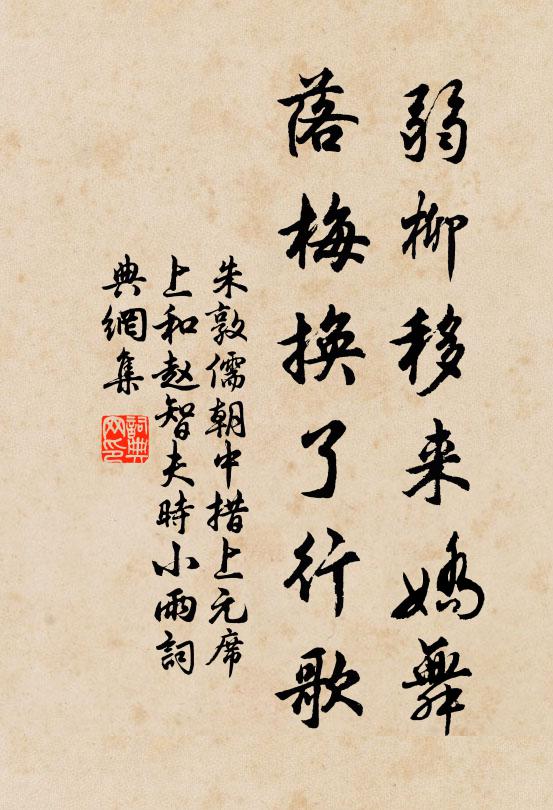 弱柳移来嬌舞
落梅換了行歌
朱敦儒朝中措上元席
上和赵智夫時小雨詞
典網集
詞典
网印